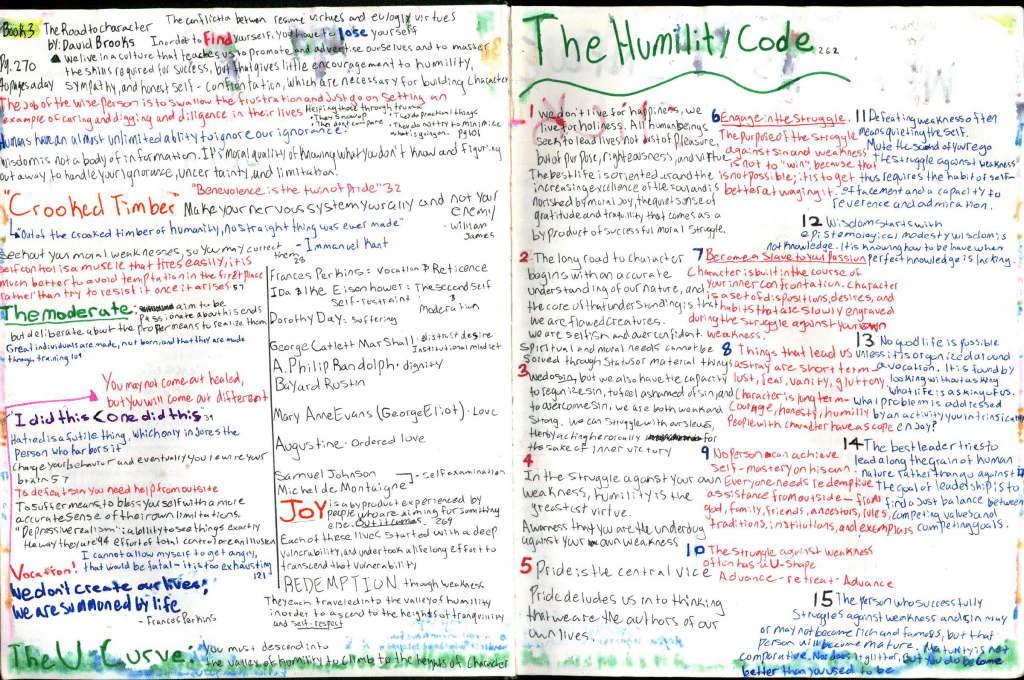 Book 3 The Road to character
The conflict in between resume virtues and eulogy virtues
by: David Brooks In order to Find yourself, you have to lose yourself
Pg. 270
40 pages a day
we live in a culture that teaches us to promote and advertise ourselves and to master
the skills required for success, but that gives little encouragement to humility,
sympathy, and honest self-confrontation, which are necessary for building character
The job of the wise person is to swallow the frustration and just go on setting an
example of caring and digging and diligence in their lives
Helping those through trauma
• They show up • They do practical things
• They don't compare • They do not try to minimize
what's going on. Pg 101
Humans have an almost unlimited ability to ignore our ignorance.
Wisdom is not a body of information. It's moral quality of knowing what you don't know and figuring
out a way to handle your ignorance, uncertainty, and limitation.
"Benevolence is the twin of pride" 32
"Crooked Timber" Make your nervous system your ally and not your
enemy
- William
James
"Out of the crooked timber of humanity, no straight thing was ever made"
- Immanuel Kant
Seek out your moral weaknesses, so you may correct
them 23
Self control is a muscle that tires easily, it is
much better to avoid temptation in the first place
rather than try to resist it once it arises 57
The moderate: aim to be
passionate about his ends
but deliberate about the proper means to realize them
Great individuals are made, not born, and that they are made
through training 109
You may not come out healed,
but you will come out different
"I did this < one did this 39
Hatred is a futile thing, which only injures the
person who harbors it
Change your behavior and eventually you rewire your
brain 57
To defeat sin you need help from outside
To suffer means to bless yourself with a more
accurate sense of their own limitations.
"Depressive realism" is ability to see things exactly
the way they are 94 effort of total control are an illusion
I cannot allow myself to get angry,
that would be fatal - it is too exhausting
121
Vocation!
We don't create our lives;
we are summoned by life
- Frances Perkins
Frances Perkins = Vocation & Reticence
IDa & Ike Eisenhower: The second self
Self-restraint &
Moderation
Dorothy Day: suffering
George Catlett Marshall: distrust desire
Institutional mindset
A. Philip Randolph - dignity
Bayard Rustin
Mary Anne Evans (George Eliot) - Love
Augustine - Ordered love
Samuel Johnson
Michel de Montaigne - self examination
Joy is a byproduct experienced by
people who are aiming for something
else. 269
Each of these lives started with a deep
vulnerability, and undertook a lifelong effort to
transcend that vulnerability
REDEMPTION through weakness
They each traveled into the valley of humility
in order to ascend to the heights of tranquility
and self-respect
The U-Curve: You must descend into
the valley of humility to climb to the heights of character
The Humility Code 262
1 we don't live for happiness, we
live for holiness. All human beings
seek to lead lives not just of pleasure,
but of purpose, righteousness, and virtue
The best life is oriented around the
increasing excellence of the soul and is
norished by moral joy, the quiet sense of
gratitude and traquility that comes as a
by product of successful moral struggle.
2 - The long road to character
begins with an accurate
understanding of our nature, and
the core of that understanding is that
we are flawed creatures.
we are selfish and overconfident.
Spiritual and moral needs cannot be
solved through status or material things
3 we do sin, but we also have the capacity
to regonize sin, to feel ashamed of sin, and
to overcome sin, we are both weak and
strong. We can struggle with ourselves,
therby acting heroically for
the sake of inner victory
4
In the struggle against your own
weakness, humility is the
greatest virtue.
Awareness that you are the underdog
against your own weakness
5 Pride is the central vice
Pride deludes us into thinking
that we are the authors of our
own lives.
6 Engage in the struggle.
The purpose of the struggle
against sin and weakness
is not to "win", because that
is not possible; it is to get
better at waging it.
7 Become a Slave to your Passion
Character is built in the course of
your inner confrontation. Character
is a set of dispositions, desires, and
habits that are slowly engraved
during the struggle against your own
weakness.
8 Things that lead us
astray are short term -
lust, fear, vanity, gluttony
Character is long term -
Courage, honesty, humilly
People with character have a scope
9 No person can achieve
self-mastery on his own.
Everyone needs redemptive
assistance from outside - from
god, family, friends, ancestors, rules,
traditions, institutions, and exemplars
10 The struggle against weakness
often has a U-shape
Advance - retreat - Advance
11 Defeating weakness often
means quieting the self.
Mute the sound of your ego
the struggle against weakness
thus requires the habit of self-
effacement and a capacity to
reverence and admiration.
12 Wisdom starts with
epistemological modesty wisdom is
not knowledge. It is knowing how to behave when
perfect knowledge is lacking.
13 No good life is possible
unless it is organized around
a vocation. It is found by
looking without asking
what life is asking of us.
what problem is addressed
by an activity you intrinsically
enjoy?
14 The best leader tries to
lead along the grain of human
nature rather than go against it
The goal of leadership is to
find a just balance between
competing values and
competing goals.
15 The person who successfully
struggles against weakness and sin may
or may not become rich and famous, but that
person will become mature. Maturity is not
comparative. Nor does it glitter, But you do become
better than you used to be